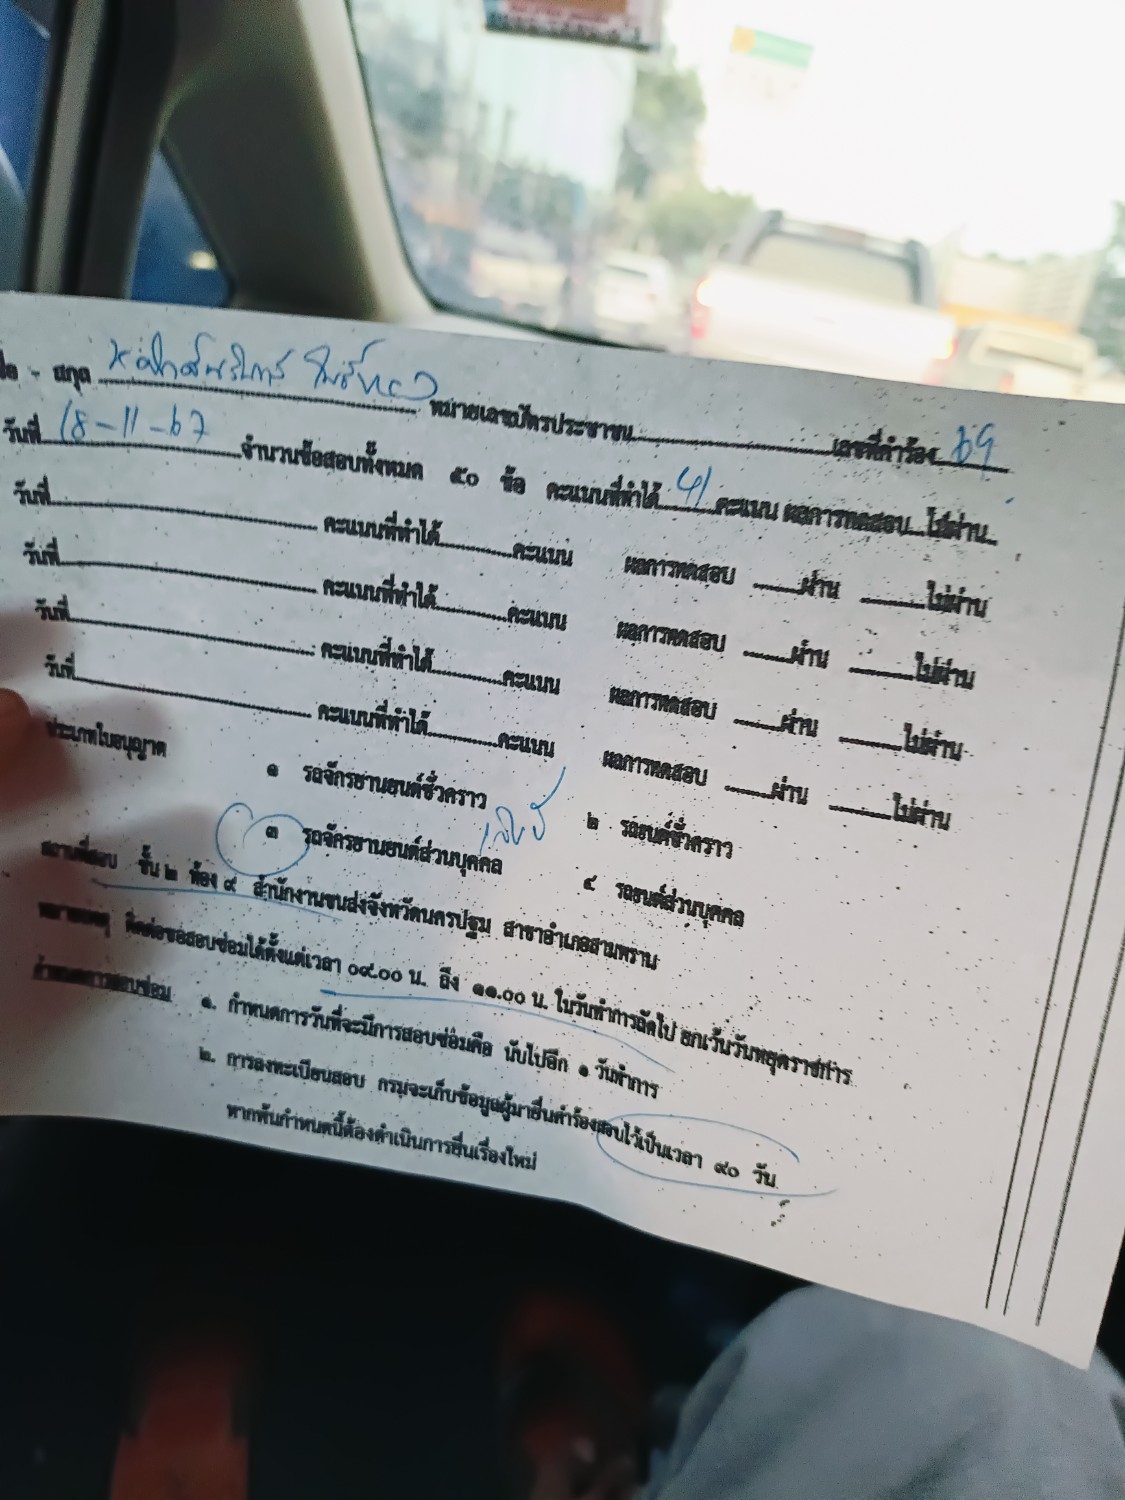 สกุล หมายเลขบัตรประชาชน เลขที่คำร้อง 69
วันที่ 18-11-67 จำนวนข้อสอบทั้งหมด ๕๐ ข้อ คะแนนที่ทำได้ 41 คะแนน ผลการทดสอบ ไม่ผ่าน
วันที่ คะแนนที่ทำได้ คะแนน ผลการทดสอบ ผ่าน ไม่ผ่าน
วันที่ คะแนนที่ทำได้ คะแนน ผลการทดสอบ ผ่าน ไม่ผ่าน
วันที่ คะแนนที่ทำได้ คะแนน ผลการทดสอบ ผ่าน ไม่ผ่าน
วันที่ คะแนนที่ทำได้ คะแนน ผลการทดสอบ ผ่าน ไม่ผ่าน
ประเภทใบอนุญาต ๑ รถจักรยานยนต์ชั่วคราว ๒ รถยนต์ชั่วคราว
๓ รถจักรยานยนต์ส่วนบุคคล ๔ รถยนต์ส่วนบุคคล
สถานที่สอบ ชั้น ๒ ห้อง ๙ สำนักงานขนส่งจังหวัดนครปฐม สาขาอำเภอสามพราน
หมายเหตุ ติดต่อขอสอบซ่อมได้ตั้งแต่เวลา ๐๙.๐๐ น. ถึง ๑๑.๐๐ น. ในวันทำการถัดไป ยกเว้นวันหยุดราชการ
กำหนดการสอบซ่อม ๑. กำหนดการวันที่จะมีการสอบซ่อมคือ นับไปอีก ๑ วันทำการ
๒. การลงทะเบียนสอบ กรมจะเก็บข้อมูลผู้มายื่นคำร้องสอบไว้เป็นเวลา ๙๐ วัน
หากพ้นกำหนดนี้ต้องดำเนินการยื่นเรื่องใหม่